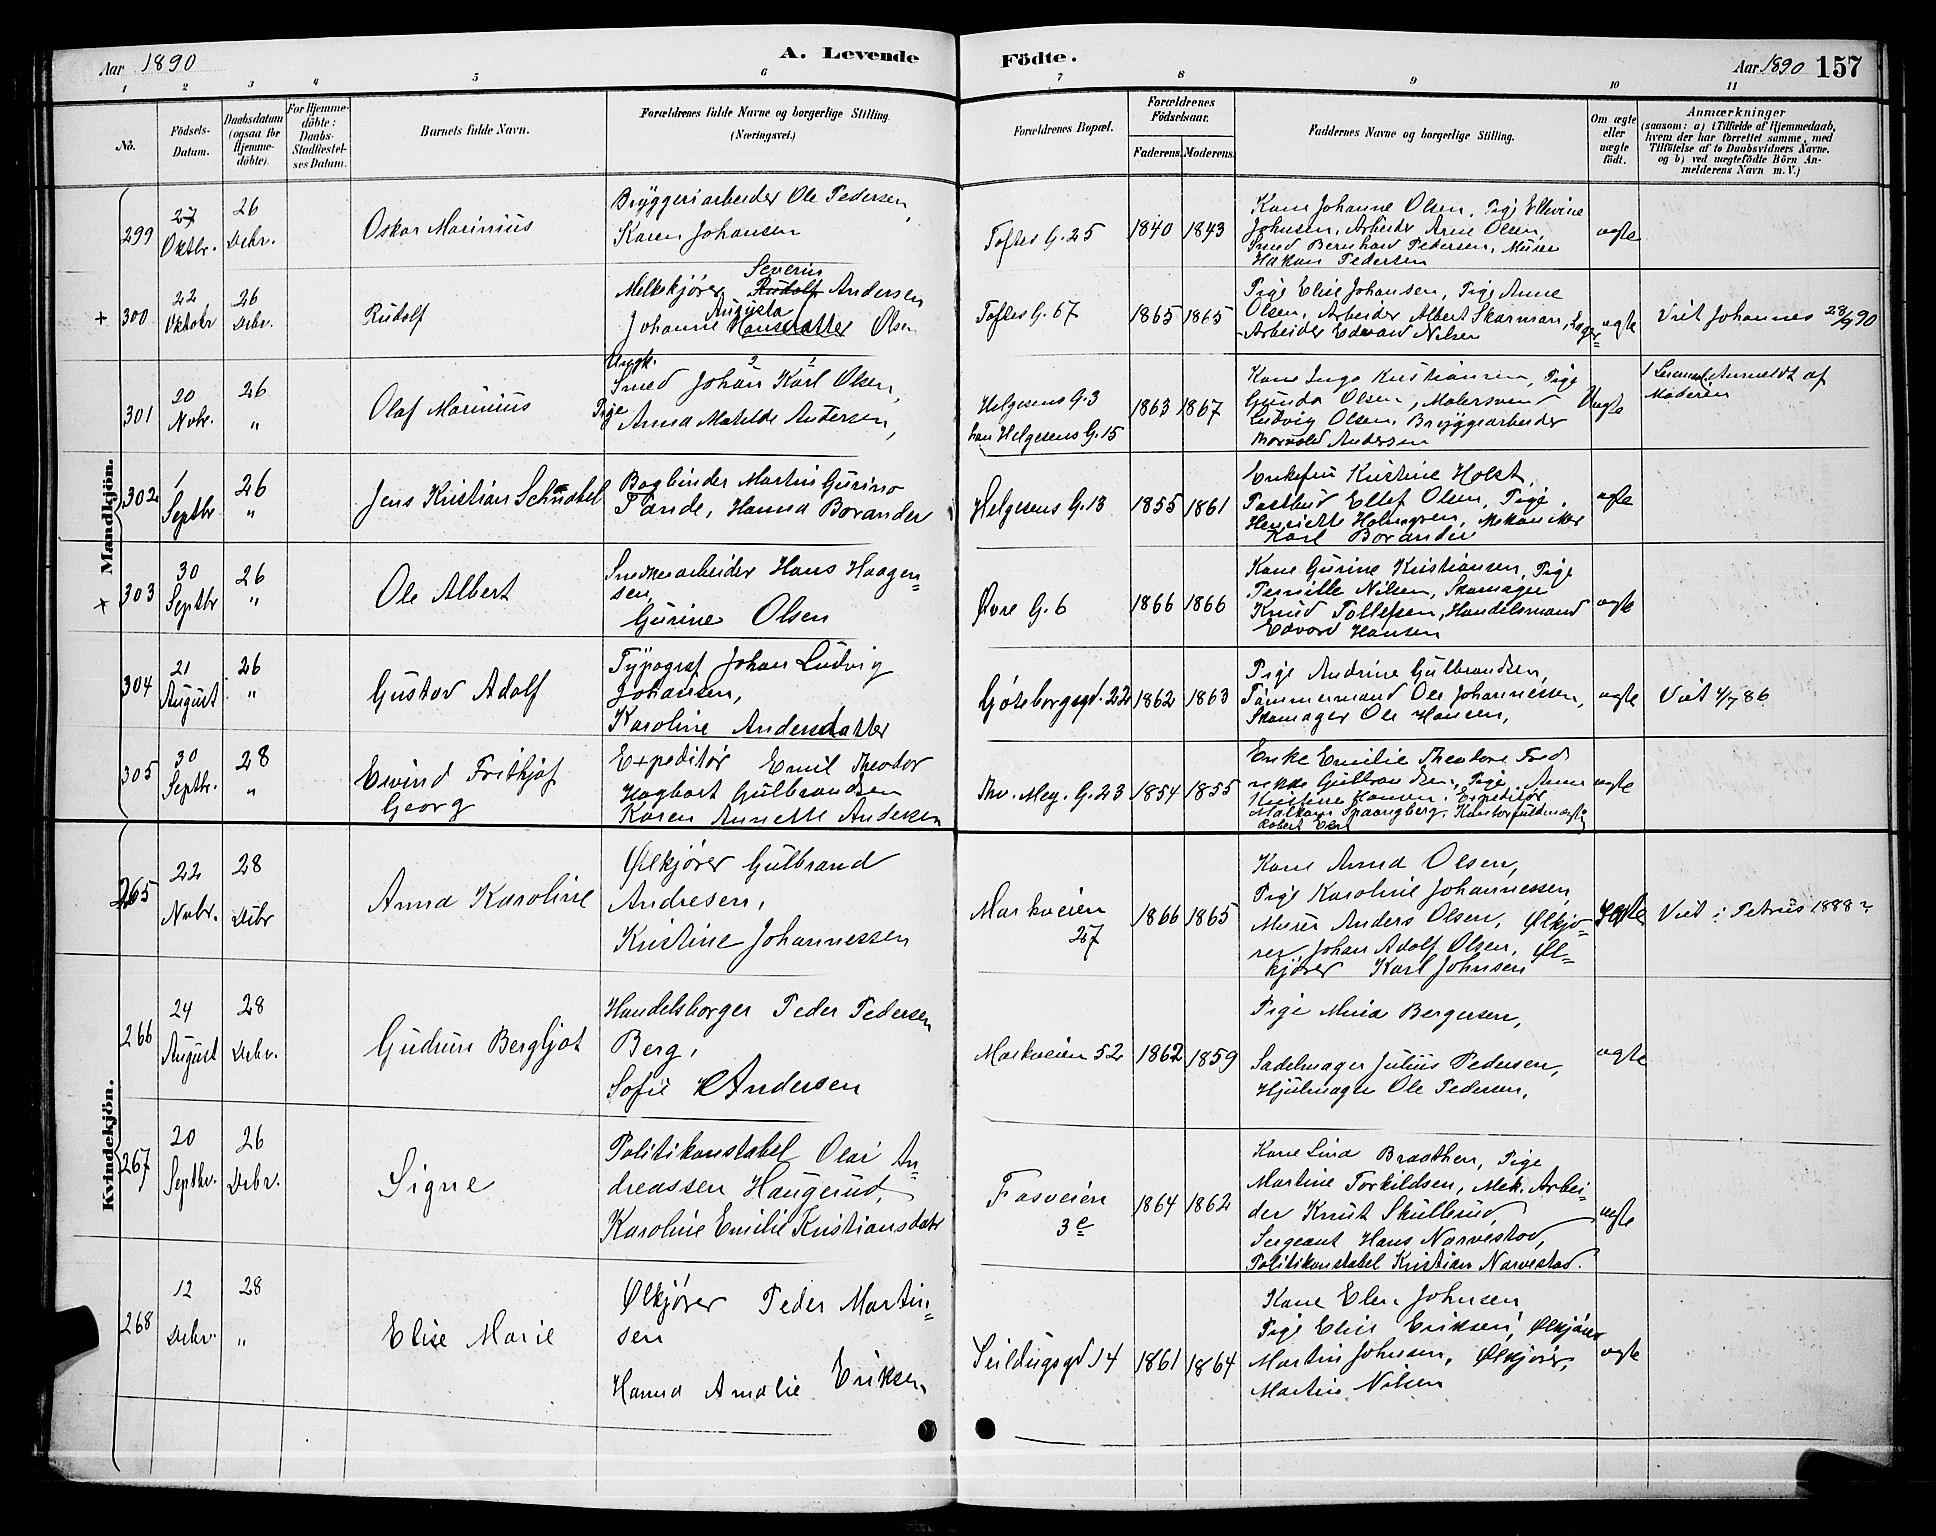 Aar 1890
A. Levende
Födte.
Aar 1890 157
1 2 3 4 5 6 7 8 9 10 11
No.
Födsels-
Datum.
Daabsdatum
(ogsaa for
Hjemme-
döbte).
For Hjemme-
döbte:
Daabs-
Stadfæstel-
ses Datum.
Barnets fulde Navn.
Forældrenes fulde Navne og borgerlige Stilling.
(Næringsvei.)
Forældrenes Bopæl.
Forældrenes
Födselsaar.
Faderens. Moderens.
Faddernes Navne og borgerlige Stilling.
Om ægte
eller
uægte
födt.
Anmærkninger
(saasom: a) i Tilfælde af Hjemmedaab,
hvem der har forrettet samme, med
Tilföielse af to Daabsvidners Navne.
og b) ved uægtefödte Börn An-
melderens Navn m. V.)
Mandkjön.
299
27
Oktbr.
26
Debr.
Oskar Marinius
Bryggeriarbeider Ole Pedersen,
Karen Johansen
Toftes G. 25
1840 1843
Kone Johanne Olsen, Pige Ellevine
Johnsen, Arbeider Arne Olsen,
Smed Bernhard Pedersen, Murer
Hakon Pedersen
ægte
+ 300
22
Oktobr
26
Debr.
Rudolf
Severin
Melkekjører Rudolf Andersen
Augusta
Johanne Hansdatter Olsen
Toftes G. 67
1865 1865
Pige Elise Johansen, Pige Anne
Olsen, Arbeider Albert Skarman, Lager-
Arbeider Edvard Nilsen
ægte
Viet Johannes 28/9 90
301
20
Nvbr.
26
"
Olaf Marinius
Ungk.
2 1
Smed Johan Karl Olsen,
Pige
Anna Matilde Andersen,
Helgesens G. 3
hun Helgesens G. 15
1863 1867
Kone Inga Kristiansen, Pige
Gunda Olsen, Malersvend
Ludvig Olsen, Bryggearbeider
Thorvald Andersen
Uægte
Anmeldt af
Moderen
302
1
Septbr
26
"
Jens Kristian Schnabel
Bogbinder Martin Gurino
Tande, Hanna Borander
Helgesens G. 13
1855 1861
Enkefru Kristine Holst,
Postbud Ellef Olsen, Pige
Henriette Holmgren, Mekaniker
Karl Borander
ægte
+ 303
30
Septbr
26
"
Ole Albert
Snedkerarbeider Hans Haagen-
sen,
Gurine Olsen
Øvre G. 6
1866 1866
Kone Gurine Kristiansen, Pige
Pernille Nilsen, Skomager
Knud Tollefsen, Handelsmand
Edvard Hansen
ægte
304
21
August
26
"
Gustav Adolf
Typograf Johan Ludvig
Johansen,
Karoline Andersdatter
Göteborgsgd. 22
1862 1863
Pige Andrine Gulbrandsen,
Tømmermand Ole Johannessen,
Skomager Ole Hansen,
ægte
Viet 4/7 86
305
30
Septbr.
28
"
Eivind Frithjof
Georg
Expeditør Emil Theodor
Hagbart Gulbrandsen
Karen Annette Andersen
Thv. Mey. G. 23
1854 1855
Enke Emilie Theodore Fred
rikke Gulbrandsen, Pige Anne
Kristine Hansen, Expeditør
Malkom Spaangberg, Kontorfuldmægtig
Robert
ægte
Kvindekjön.
265
22
Nvbr.
28
Debr
Anna Karoline
Ølkjører Gulbrand
Andresen,
Kristine Johannessen
Markveien
27
1866 1865
Kone Anna Olsen,
Pige Karoline Johannessen,
Murer Anders Olsen, Ølkjø-
rer Johan Adolf Olsen, Øl-
kjører Karl Johnsen
ægte
Viet i Petrus 1888?
266
24
August
28
Debr.
Gudrun Bergljot
Handelsborger Peder Pedersen
Berg,
Sofie Andersen
Markveien 52
1862 1859
Pige Mina Bergersen,
Sadelmager Julius Pedersen,
Hjulmager Ole Pedersen,
ægte
267
20
Septbr.
26
Debr.
Signe
Politikonstabel Olai An-
dreassen Haugerud,
Karoline Emilie Kristiansdatr
Fossveien
3c
1864 1862
Kone Lina Braathen, Pige
Martine Torkildsen, Mek. Arbei-
der Knut Skullerud,
Sergeant Hans Narvestad,
Politikonstabel Kristian Narvestad.
ægte
268
12
Debr.
28
"
Elise Marie
Ølkjører Peder Martin-
sen
Hanna Amalie Eriksen
Seildugsgd 14
1861 1864
Kone Elen Johnsen,
Pige Elise Eriksen, Ølkjører
Martin Johnsen, Ølkjører,
Martin Nilsen
ægte